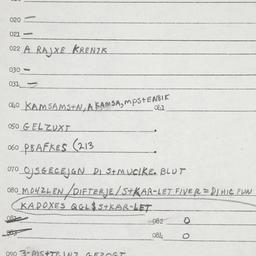 020 —
021 —
022 A RAJXE KRENIK
030 —
031 —
040 KAMSAMS+N, A KAMSA, MPS+ENBIK
041
050 GELZUXT .
060 PEAFKES (213 .
070 OJSGECEJGN DI S+MUCIKE. BLUT
080 MOYZLEN/DIFTERJE/S+KAR-LET FIVER = DI HIC FUN
KADOXES QGL$S+KAR-LET
082 O
084 O
090 3-MIS+TRINZ GEZOGT